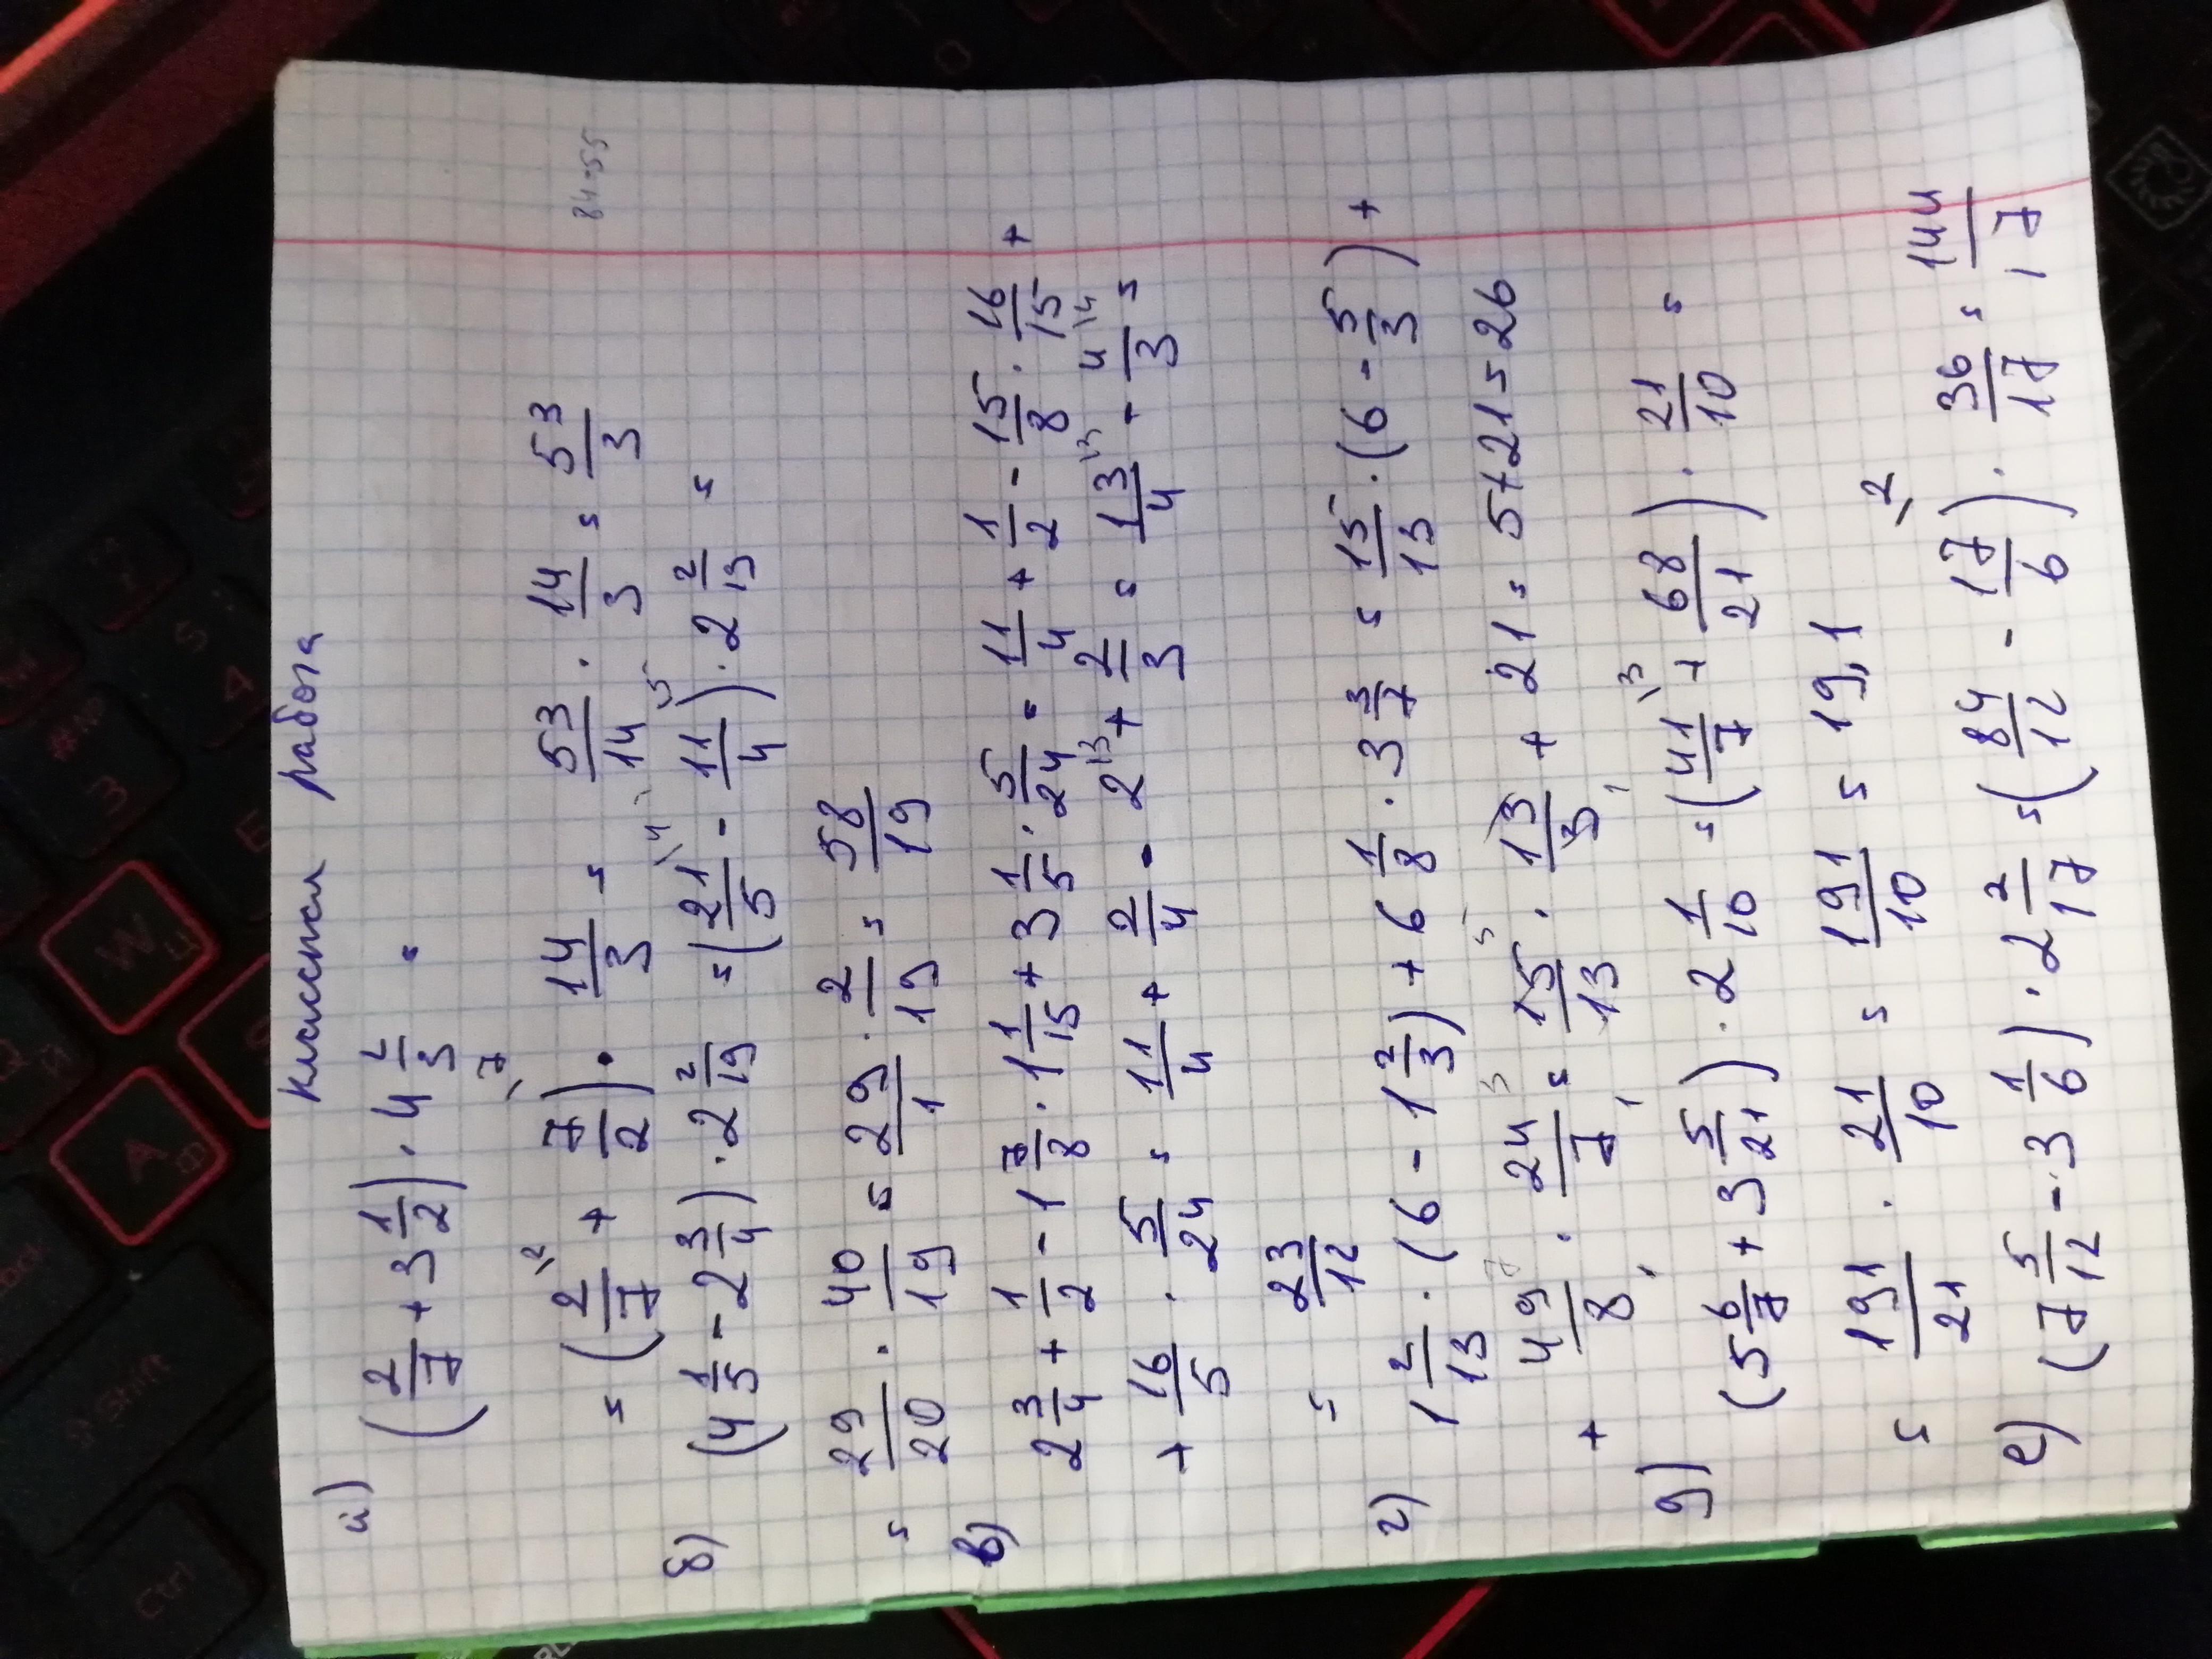 Классная работа
а) (2/7 + 3 1/2) · 4 2/3 =
= (2/7 \2 + 7/2 \7) · 14/3 = 53/14 · 14/3 = 53/3
84-55
б) (4 1/5 - 2 3/4) · 2 2/19 = (21/5 \4 - 11/4 \5) · 2 2/19 =
= 29/20 · 40/19 = 29/1 · 2/19 = 58/19
в) 2 3/4 + 1/2 - 1 7/8 · 1 1/15 + 3 1/5 · 5/24 = 11/4 + 1/2 - 15/8 · 16/15 +
+ 16/5 · 5/24 = 11/4 + 2/4 - 2 \3 + 2/3 = 13/4 \3 - 4/3 \4 =
= 23/12
г) 1 2/13 · (6 - 1 2/3) + 6 1/8 · 3 3/7 = 15/13 · (6 - 5/3) +
+ 49/8 · 24/7 = 15/13 · 13/3 + 21 = 5 + 21 = 26
д) (5 6/7 + 3 5/21) · 2 1/10 = (41/7 \3 + 68/21) · 21/10 =
= 191/21 · 21/10 = 191/10 = 19,1
е) (7 5/12 - 3 1/6) · 2 2/17 = (84/12 - 17/6 \2) · 36/17 = 144/17